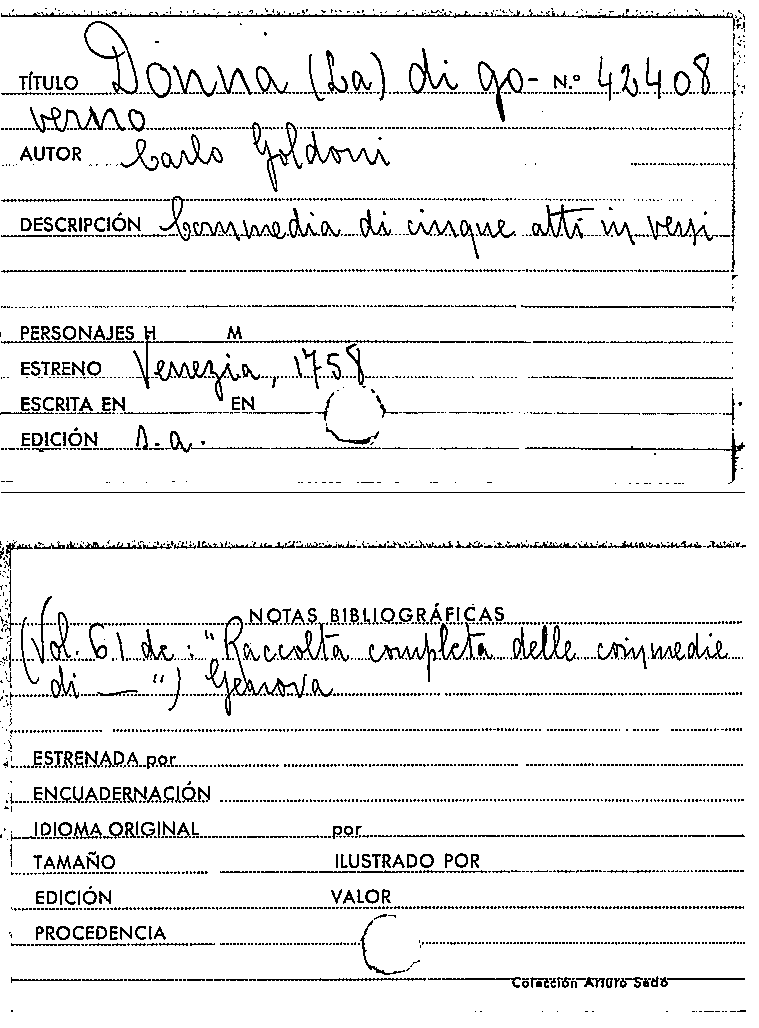 TÍTULO Donna (La) di go- N.º 42408
verno
AUTOR Carlo Goldoni
DESCRIPCIÓN Commedia di cinque atti in versi
PERSONAJES H M
ESTRENO Venezia, 1758
ESCRITA EN EN
EDICIÓN s.a.
NOTAS BIBLIOGRÁFICAS
(Vol. 61 de: "Raccolta completa delle commedie
di — ") Genova
ESTRENADA por
ENCUADERNACIÓN
IDIOMA ORIGINAL por
TAMAÑO ILUSTRADO POR
EDICIÓN VALOR
PROCEDENCIA
Colección Arturo Sedó